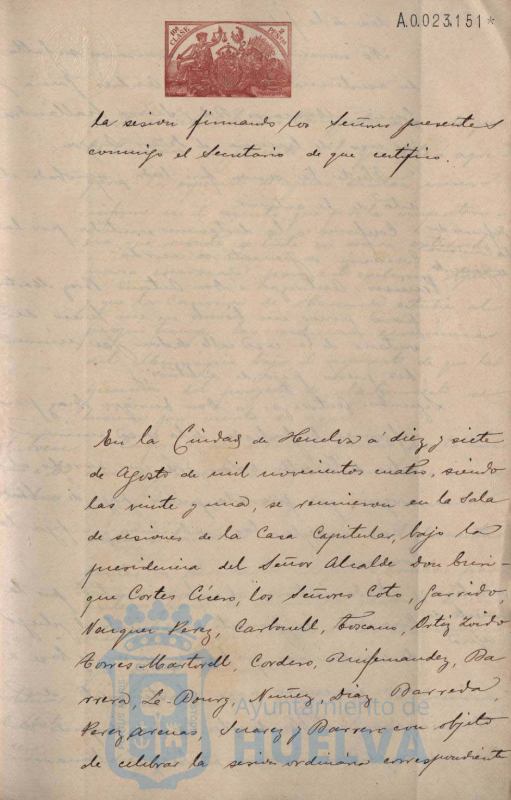 A.0.023.151*
10ª CLASE
2 PESETAS
la sesion firmando los Señores presentes
conmigo el Secretario de que certifico.
En la Ciudad de Huelva á diez y siete
de Agosto de mil novecientos cuatro, siendo
las veinte y una, se reunieron en la Sala
de sesiones de la Casa Capitular, bajo la
presidencia del Señor Alcalde don Enri-
que Cortes Cícero, los Señores Coto, Garrido,
Vazquez Perez, Carbonell, Toscano, Ortiz
Torres Martorell, Cordero, Ruifernandez, Ba
rrera, Le-Bourg, Nuñez, Diaz, Barreda,
Perez Arenas, Suarez y Barrero con objeto
de celebrar la sesion ordinaria correspondiente
Ayuntamiento de
HUELVA